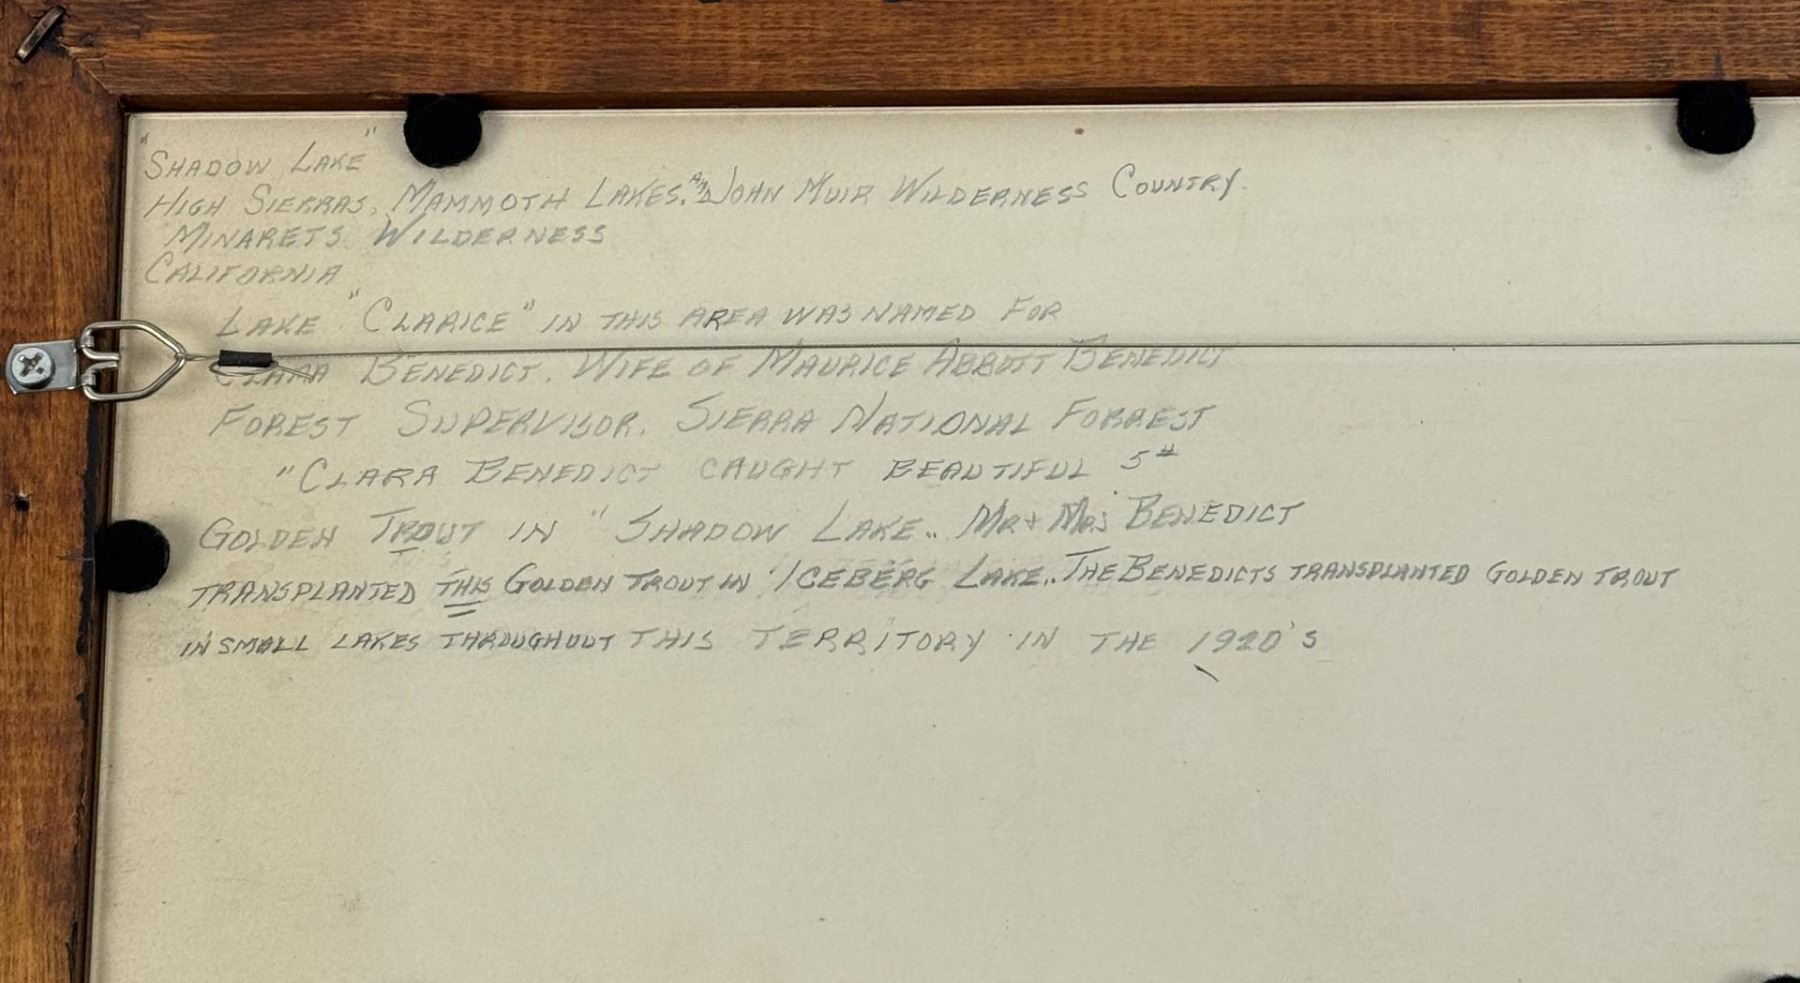 "SHADOW LAKE"
HIGH SIERRAS, MAMMOTH LAKES. AND JOHN MUIR WILDERNESS COUNTRY.
MINARETS WILDERNESS
CALIFORNIA
LAKE "CLARICE" IN THIS AREA WAS NAMED FOR
CLARA BENEDICT. WIFE OF MAURICE ABBOTT BENEDICT
FOREST SUPERVISOR. SIERRA NATIONAL FORREST
"CLARA BENEDICT CAUGHT BEAUTIFUL 5#
GOLDEN TROUT IN "SHADOW LAKE.. MR + MRS BENEDICT
TRANSPLANTED THIS GOLDEN TROUT IN 'ICEBERG LAKE.. THE BENEDICTS TRANSPLANTED GOLDEN TROUT
IN SMALL LAKES THROUGHOUT THIS TERRITORY IN THE 1920'S